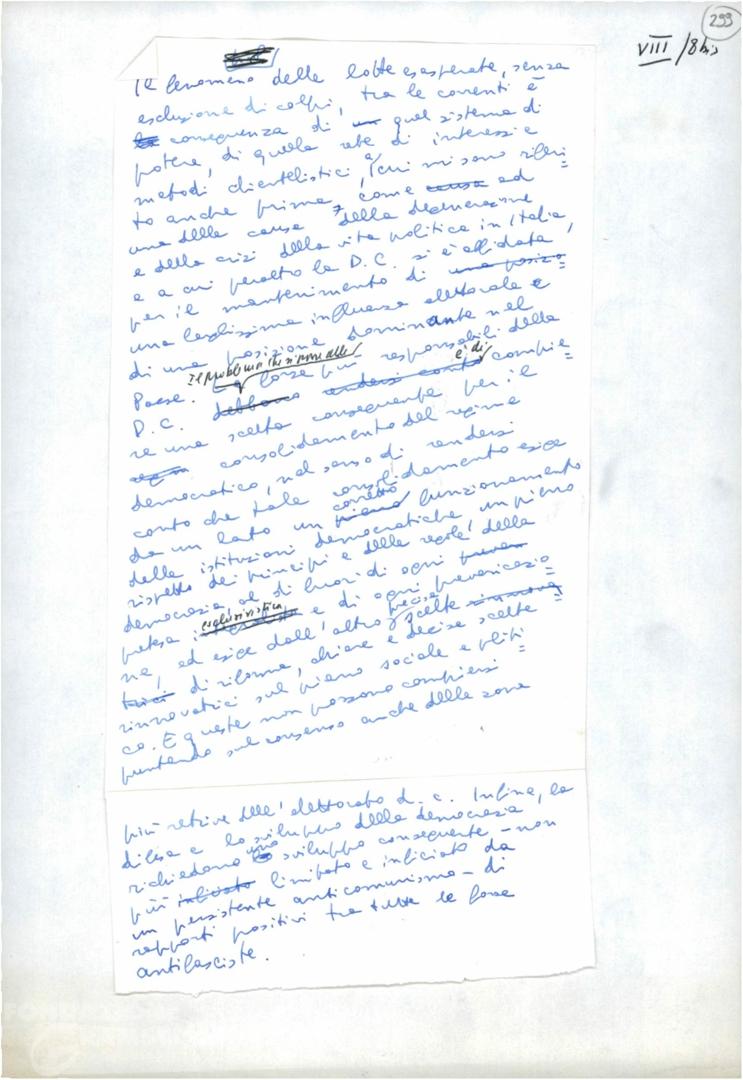 299
VIII /8bis
Il fenomeno delle lotte esasperate, senza
esclusione di colpi, tra le correnti è
conseguenza di quel sistema di
potere, di quella rete di interessi e
metodi clientelistici, a cui mi sono riferi=
to anche prima, come causa ad
una delle cause della degenerazione
e della crisi della vita politica in Italia,
e a cui peraltro la D.C. si è affidata,
per il mantenimento di una posizio=
una larghissima influenza elettorale e
di una posizione dominante nel
Il problema che si pone alle
Paese. Le forze più responsabili della
è di
D.C. debbono rendersi conto compie=
re una scelta conseguente per il
consolidamento del regime
democratico, nel senso di rendersi
conto che tale consolidamento esige
da un lato un pieno funzionamento
corretto
delle istituzioni democratiche un pieno
rispetto dei principi e delle regole della
democrazia, al di fuori di ogni
esclusivistica
pretesa e di ogni prevaricazio=
ne, ed esige dall'altro precise scelte rinnova=
trici di riforma, chiare e decise scelte
rinnovatrici sul piano sociale e politi=
co. E queste non possono compiersi
puntando sul consenso anche delle zone
più retrive dell'elettorato d.c. Infine, la
difesa e lo sviluppo della democrazia
richiedono uno sviluppo conseguente – non
più inficiato limitato e inficiato da
un persistente anticomunismo – di
rapporti positivi tra tutte le forze
antifasciste.